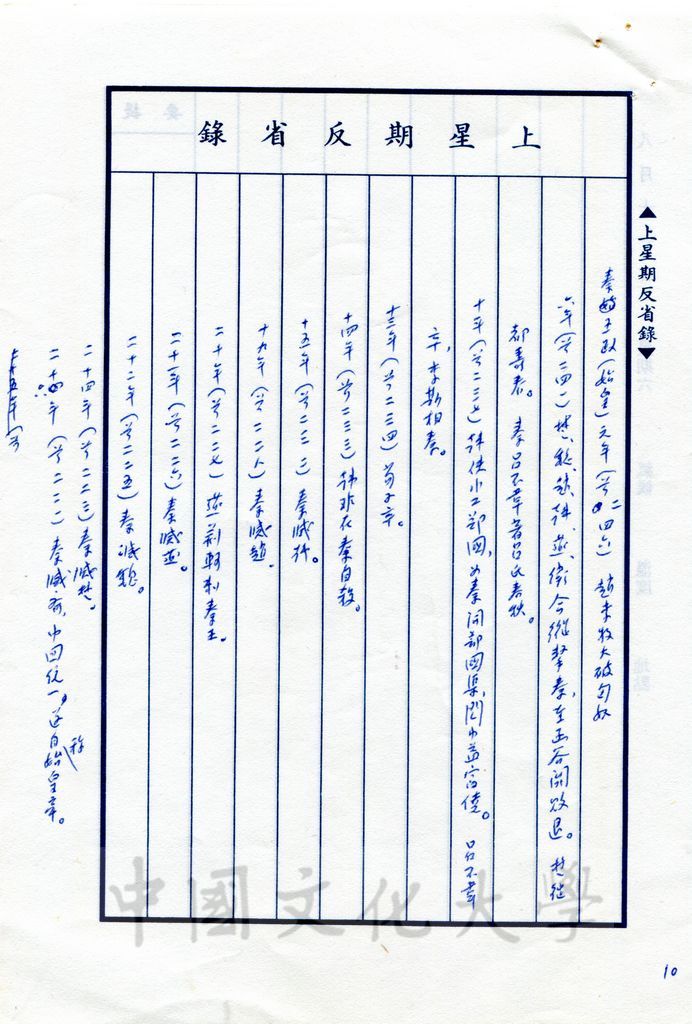 上星期反省錄
▲上星期反省錄▼
秦始王政(始皇)元年(前二四六) 趙李牧大破匈奴
六年(前二四一)楚、趙、魏、韓、燕、衛合縱擊秦,至函谷關敗退。楚徙
都壽春。秦呂不韋著呂氏春秋。
十年(前二三七)韓使水工鄭國,為秦開鄭國渠,關中益富饒。呂不韋
卒,李斯相秦。
十三年(前二三四)荀子卒。
十四年(前二三三)韓非在秦自殺。
十五年(前二三 )秦滅韓。
十九年(前二二八)秦滅趙。
二十年(前二二七)燕荊軻刺秦王。
二十一年(前二二六)秦滅燕。
二十二年(前二二五)秦滅魏。
二十四年(前二二三)秦滅楚。
二十四年(前二二一)秦滅齊,中國統一。 自稱始皇帝。
二十五年(前
中國文化大學
10